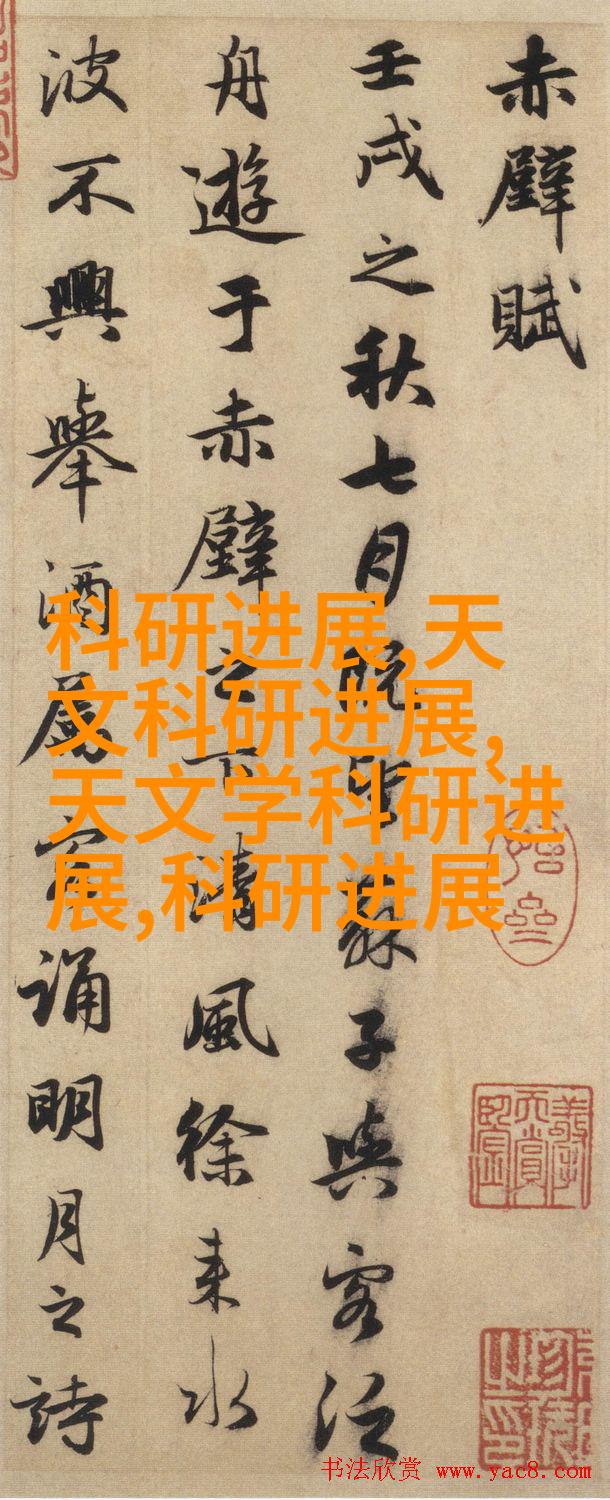 赤壁賦
壬戌之秋七月既望蘇子與客泛
舟遊于赤壁之下清風徐来水
波不興舉酒屬客誦明月之詩
科研进展,天
文科研进展,
天文学科研进
展,科研进展
书法欣赏 www.yac8.com